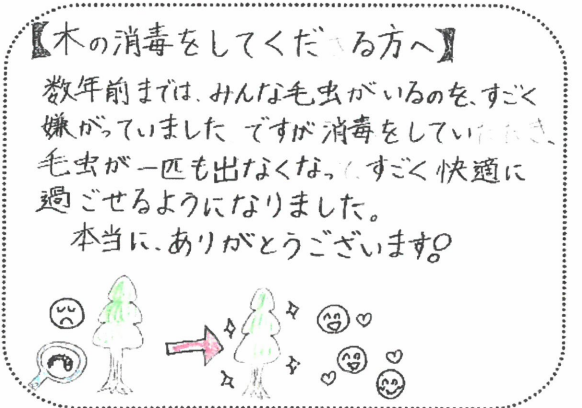 【木の消毒をしてくださる方へ】
数年前までは、みんな毛虫がいるのを、すごく
嫌がっていました ですが 消毒をしていただき、
毛虫が一匹も出なくなって、すごく快適に
過ごせるようになりました。
本当に、ありがとうございます!